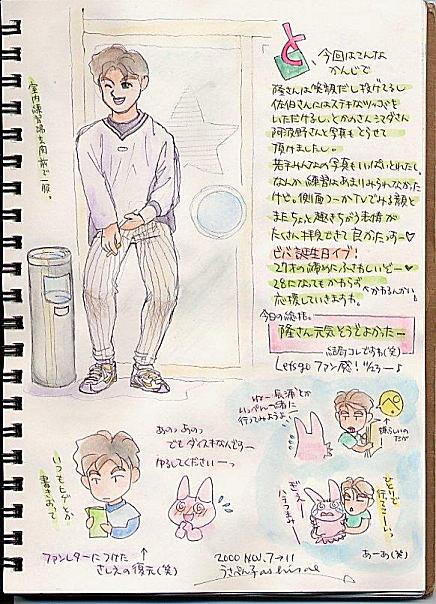 と、今回はこんな
かんじで
隆さんは笑顔だし投げてるし
佐伯さんにはステキなツッコミを
いただけるし、とかさん
阿波野さんと写真もとらせて
頂けましたし。
若手みんなの写真もいっぱいとれたし。
なんか練習はあまりみられなかった
けど。側面つーかTVでみる顔と
またちょと趣きちがう表情が
たくさん拝見できて良かたっすー♡
ビバ誕生日イブ!
27才の締めにふさわしいどー♡
28になってもかわらず
応援していきますわ。
かわるんかい!
今日の総括。
隆さん元気そうでよかたー
結局コレですわ(笑)
Let's go ファン感!
室内練習場玄関前で一服。
ねー長浦とか
いっぺん一緒に
行ってみようよー
嬉しいの
だが
あのっ あのっ
でも ダイスキなんですー
ゆるしてくださいーっ
いつもヒゲとか
書きおって
ひとりで
行ってこーいっ
ぎえー
ハラつまみー
あーあ(笑)
ファンレターにつけた
さしえの復元(笑)
2000 NOV. 7→11